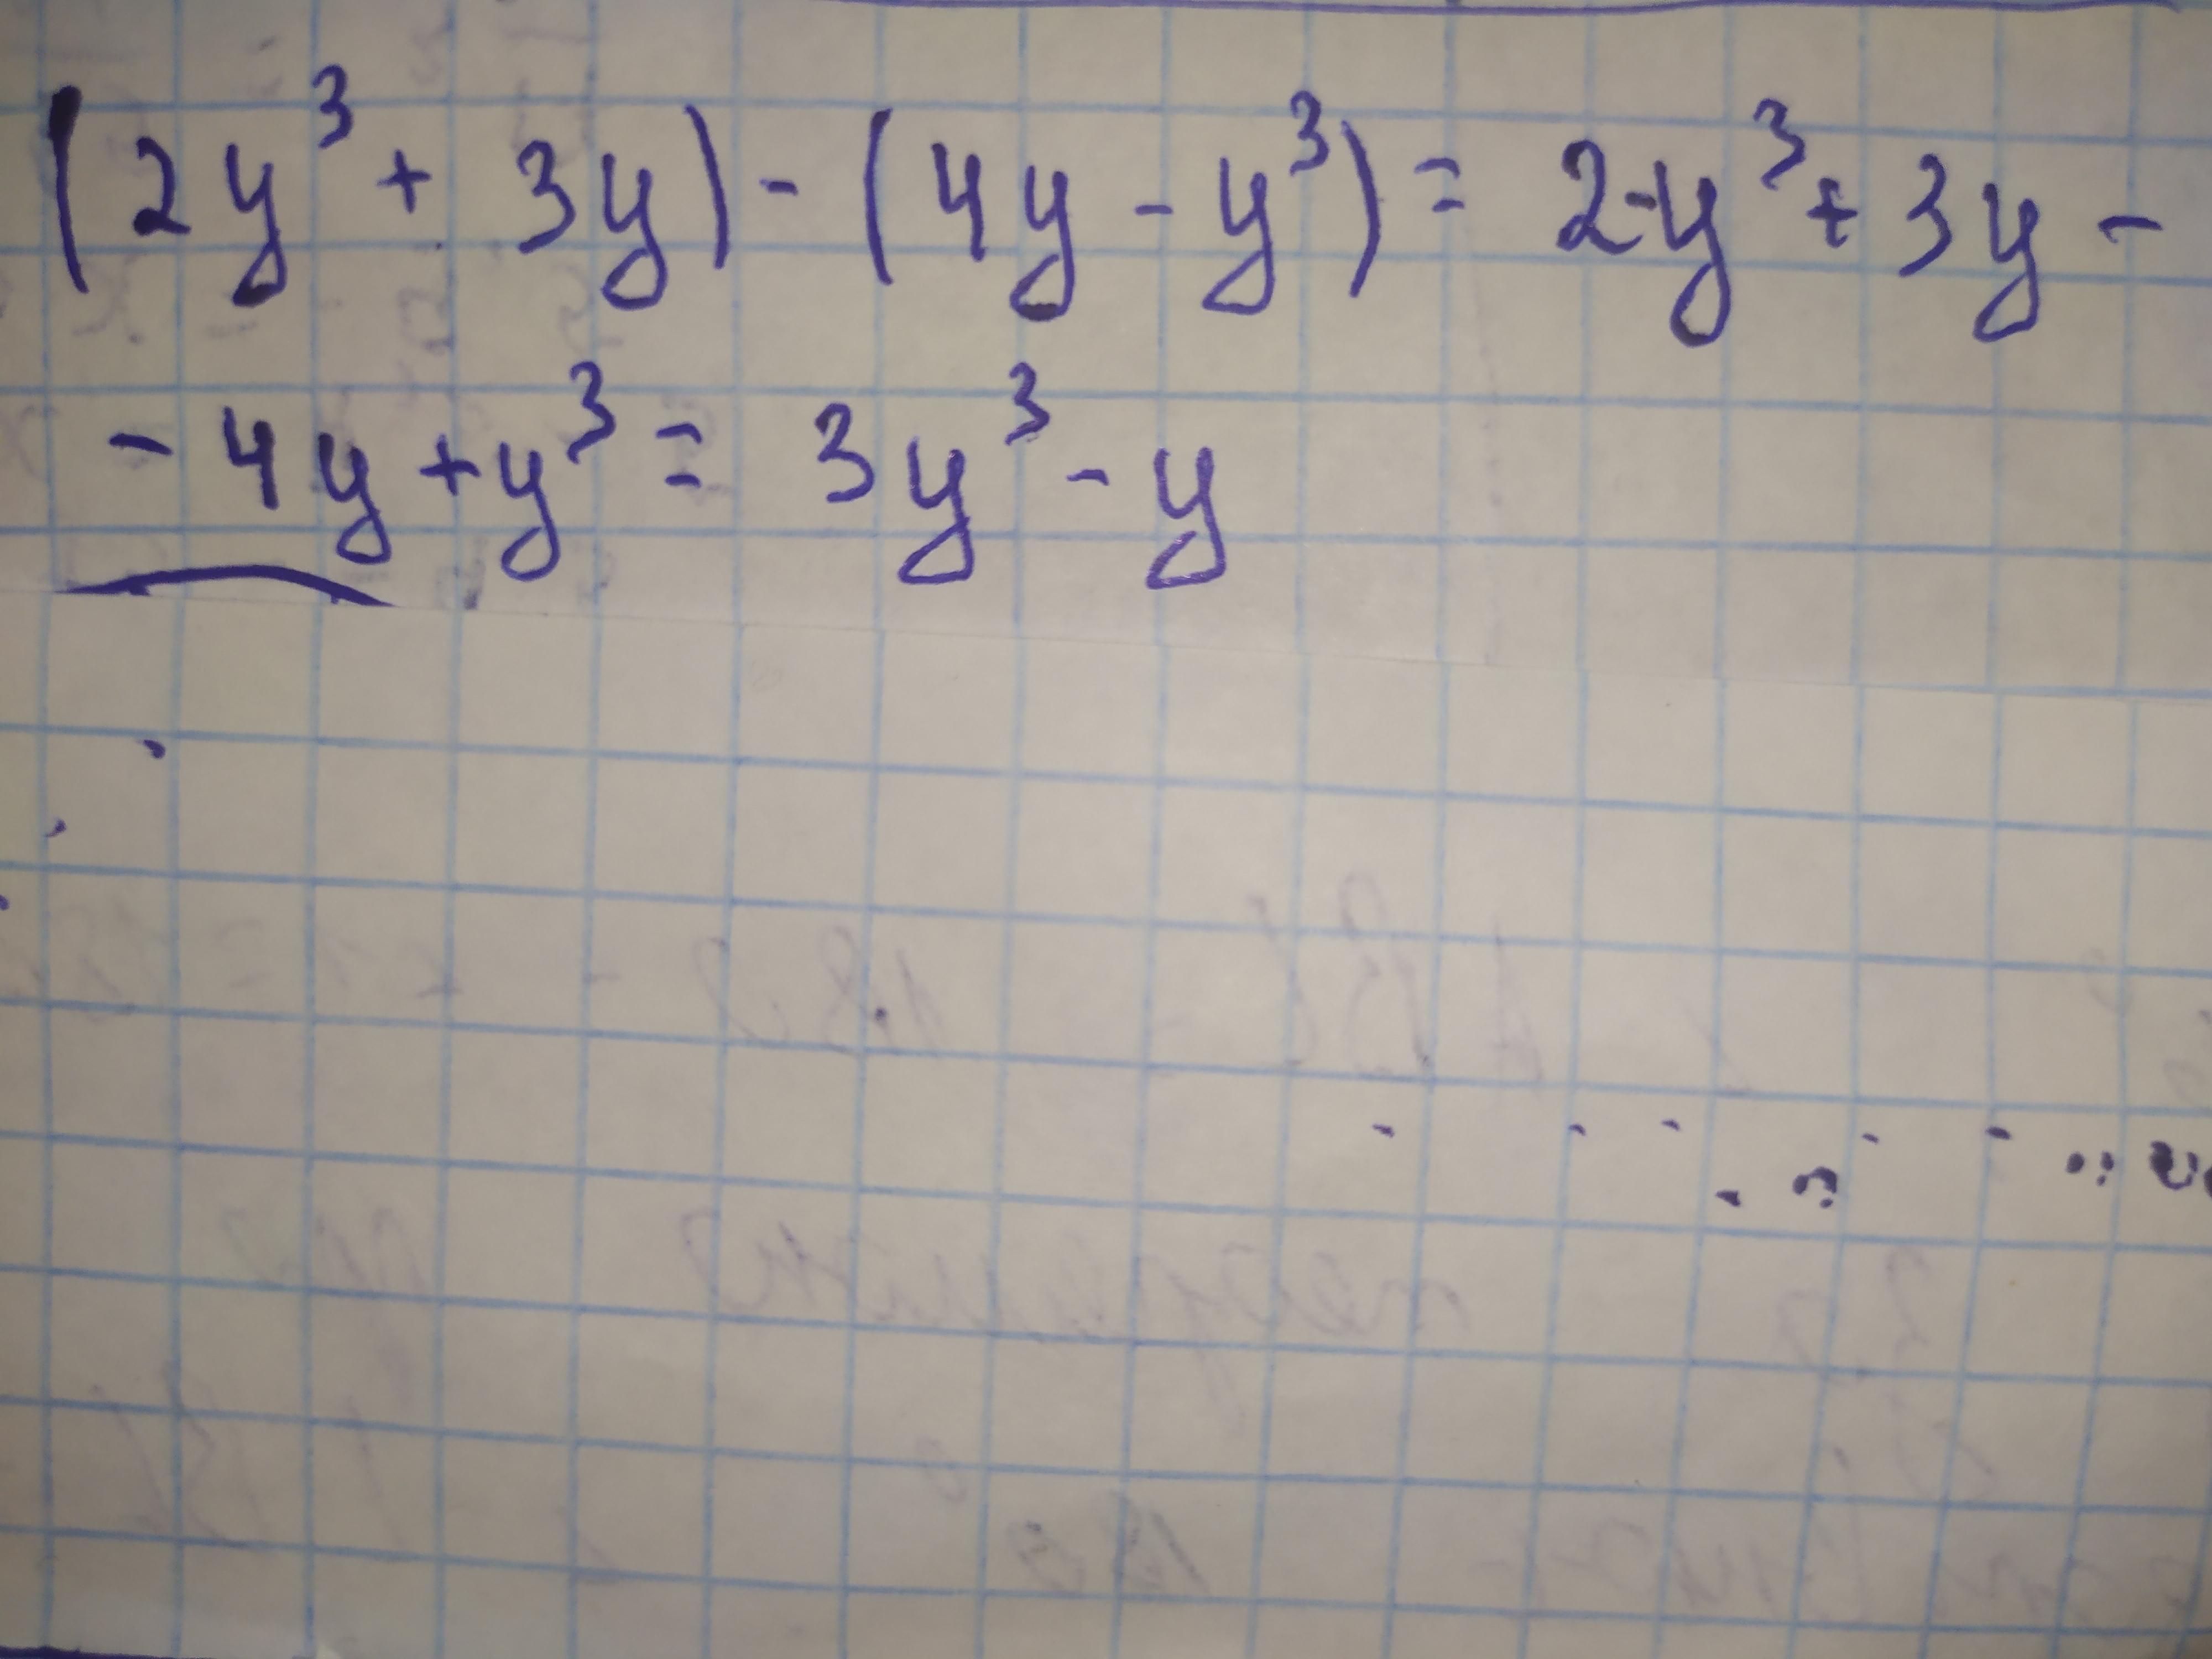 (2y³ + 3y) - (4y - y³) = 2y³ + 3y -
- 4y + y³ = 3y³ - y